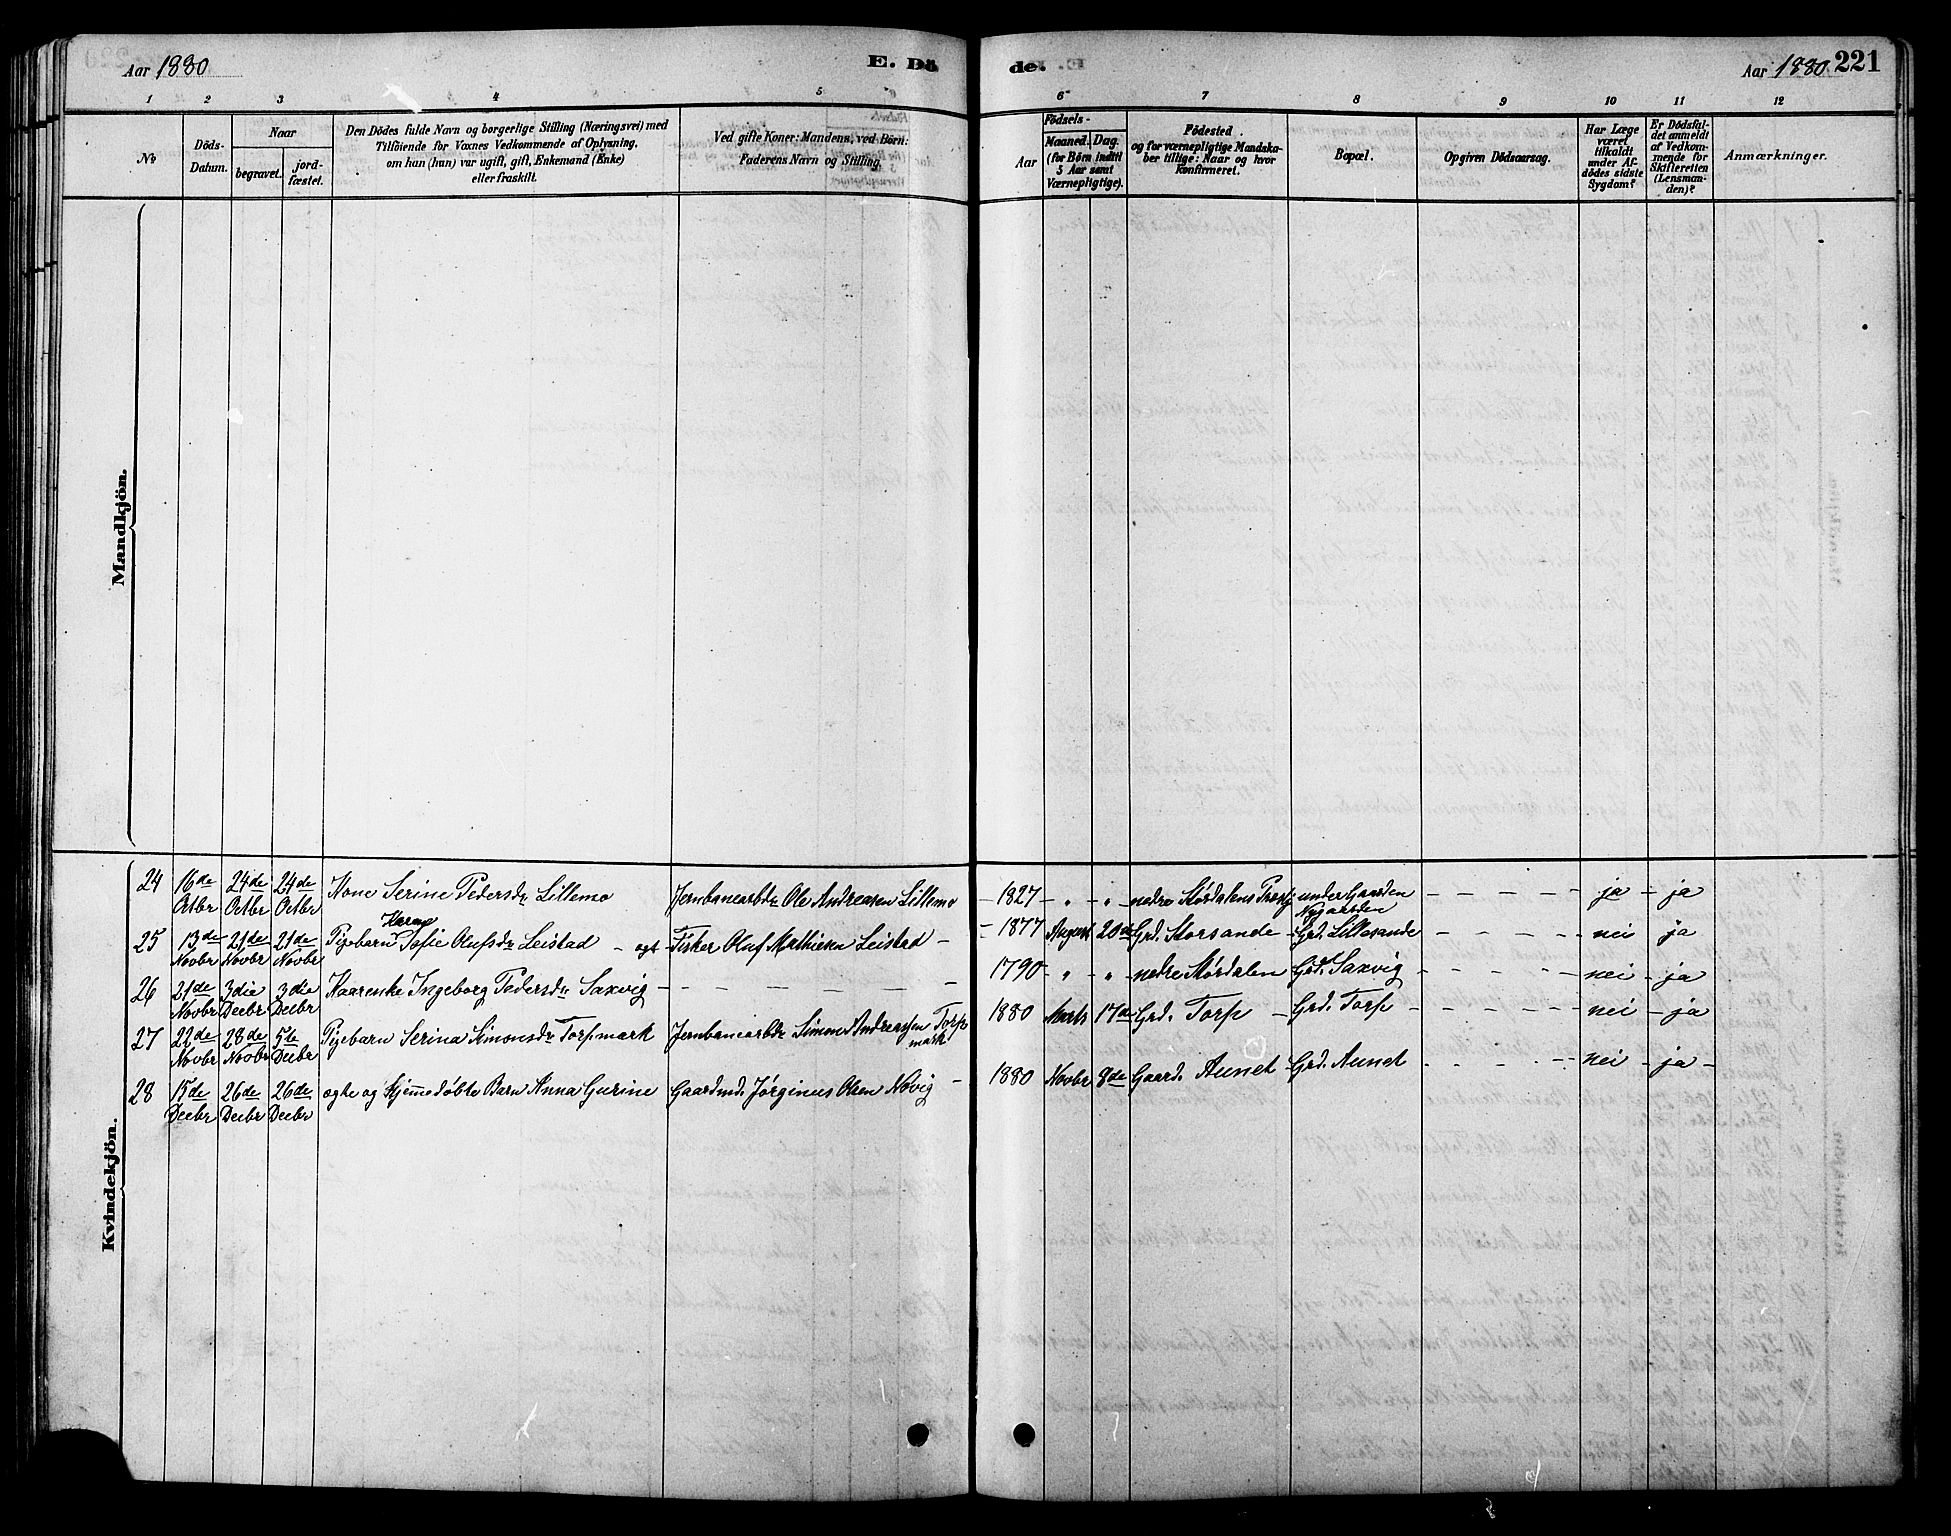 Aar 1880
E. Dö
de.
Aar 1880.
221
1 2 3 4 5 6 7 8 9 10 11 12
No
Döds-
Datum.
Naar
begravet.
jord-
fæstet.
Den Dödes fulde Navn og borgerlige Stilling (Næringsvei) med
Tilföiende for Voxnes Vedkommende af Oplysning,
om han (hun) var ugift, gift, Enkemand (Enke)
eller fraskilt.
Ved gifte Koner: Mandens, ved Börn:
Faderens Navn og Stilling.
Födsels-
Aar
Maaned. Dag.
(for Börn indtil
5 Aar samt
Værnepligtige).
Födested
og for værnepligtige Mandska-
ber tillige: Naar og hvor
konfirmeret.
Bopæl.
Opgiven Dödsaarsag.
Har Læge
været
tilkaldt
under Af-
dödes sidste
Sygdom?
Er Dödsfal-
det anmeldt
af Vedkom-
mende for
Skifteretten
(Lensman-
den)?
Anmærkninger.
Mandkjön.
Kvindekjön.
24 16de Octbr 24de Octbr 24de Octbr Kone Serine Pedersdr Lillemo Jernbanearbdr Ole Andreasen Lillemo - 1827 - " - " - nedre Størdalens Præstgj - under Gaarden Nygaarden - - - - ja - ja
25 13de Novbr 21de Novbr 21de Novbr Pigebarn Sofie Olufsdr Leistad - ogt - Fisker Oluf Mathisen Leistad - - 1877 August 20de Grd. Storsande - Grd. Lillesande - - - - nei ja
26 21de Novbr 3die Decbr 3die Decbr Kaarenke Ingeborg Pedersdr Saxvig - - - - - - - 1790 - " - " - nedre Størdalen Grd. Saxvig - - - - nei - ja
27 22de Novbr 28de Novbr 5te Decbr Pigebarn Serina Simonsdr Torpmark Jernbanearbdr Simon Andreassen Torpmark 1880 Marts 17de Grd. Torp - Grd. Torp - - - - nei - ja
28 15de Decbr 26de Decbr 26de Decbr ogte og Hjemmedøbte Barn Anna Gurine Gaardmd. Jørginus Olsen Novig - 1880 Novbr 8de Gaard. Aunet - Grd. Aunet - - - - nei - ja -